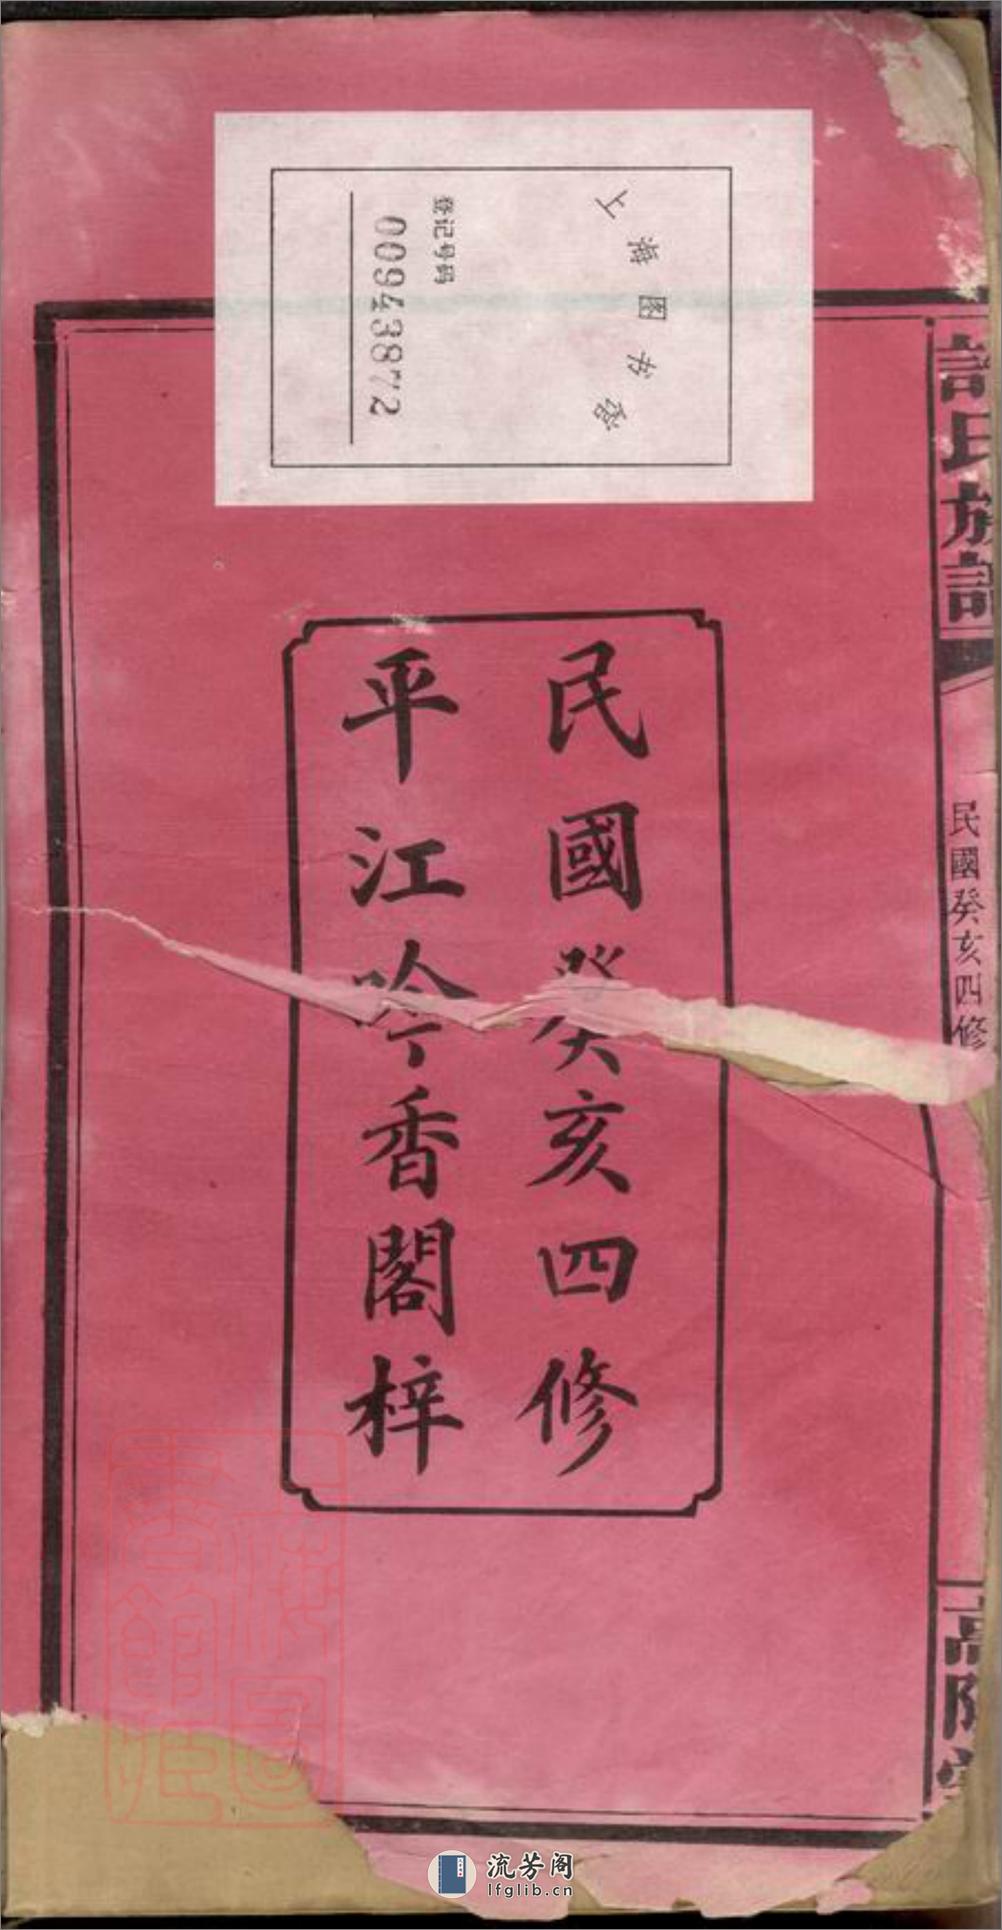 上海图书馆
登记号码
00943872
許氏族譜
民國癸亥四修
高陽堂
民國癸亥四修
平江吟香閣梓
流芳阁
lfglib.cn